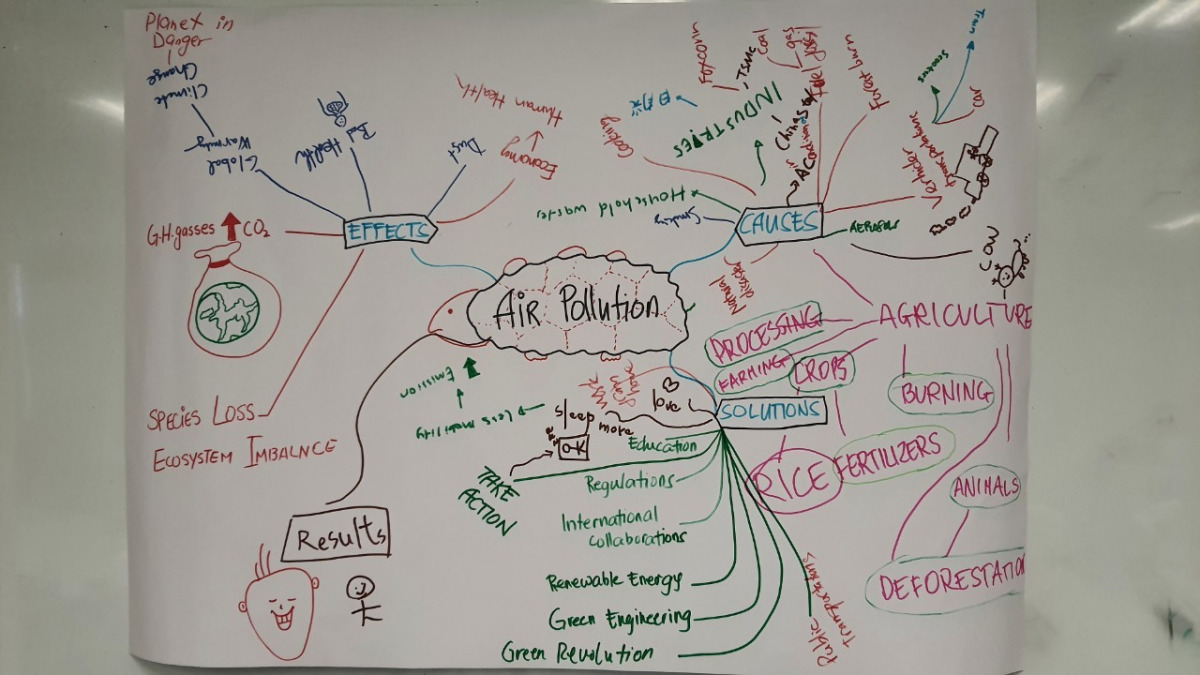 Planet in
Danger
Climate
Change
Global
Warming
Bad Health
Dust
Human Health
Economy
EFFECTS
G.H.gasses
CO2
SPECIES LOSS
ECOSYSTEM IMBALNCE
AIR POLLUTION
Results
CAUSES
Smoking
Household wastes
Cooking
INDUSTRIES
FOXCONN
TSMC
Coal
gas
China
Forest burn
Vehicles
Scooters
Train
Car
AEROSOLS
COW
Natural
disaster
AGRICULTURE
PROCESSING
FARMING
CROPS
BURNING
RICE
FERTILIZERS
ANIMALS
DEFORESTATION
SOLUTIONS
love
sleep
more
Less mobility
Emission
O-K
TAKE
ACTION
Education
Regulations
International
collaborations
Renewable Energy
Green Engineering
Green Revolution
Public
Transportations